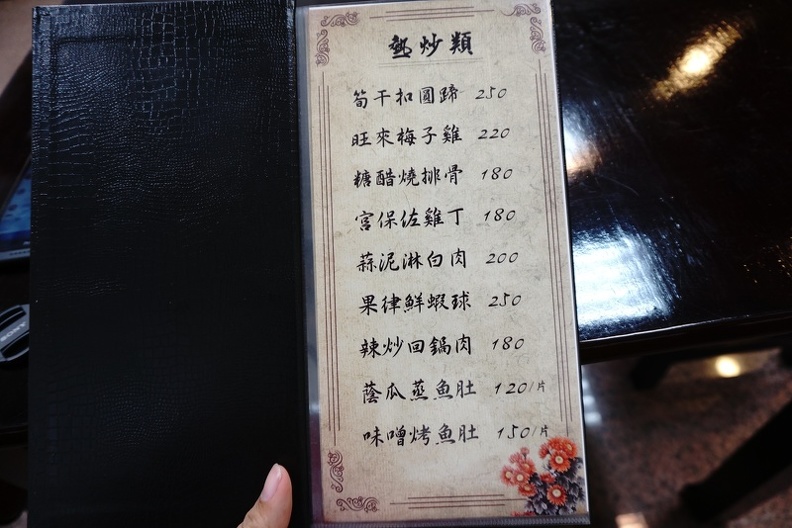 熱炒類
筍干扣圓蹄 250
旺來梅子雞 220
糖醋燒排骨 180
宮保佐雞丁 180
蒜泥淋白肉 200
果律鮮蝦球 250
辣炒回鍋肉 180
蔭瓜蒸魚肚 120/片
味噌烤魚肚 150/片
SONY